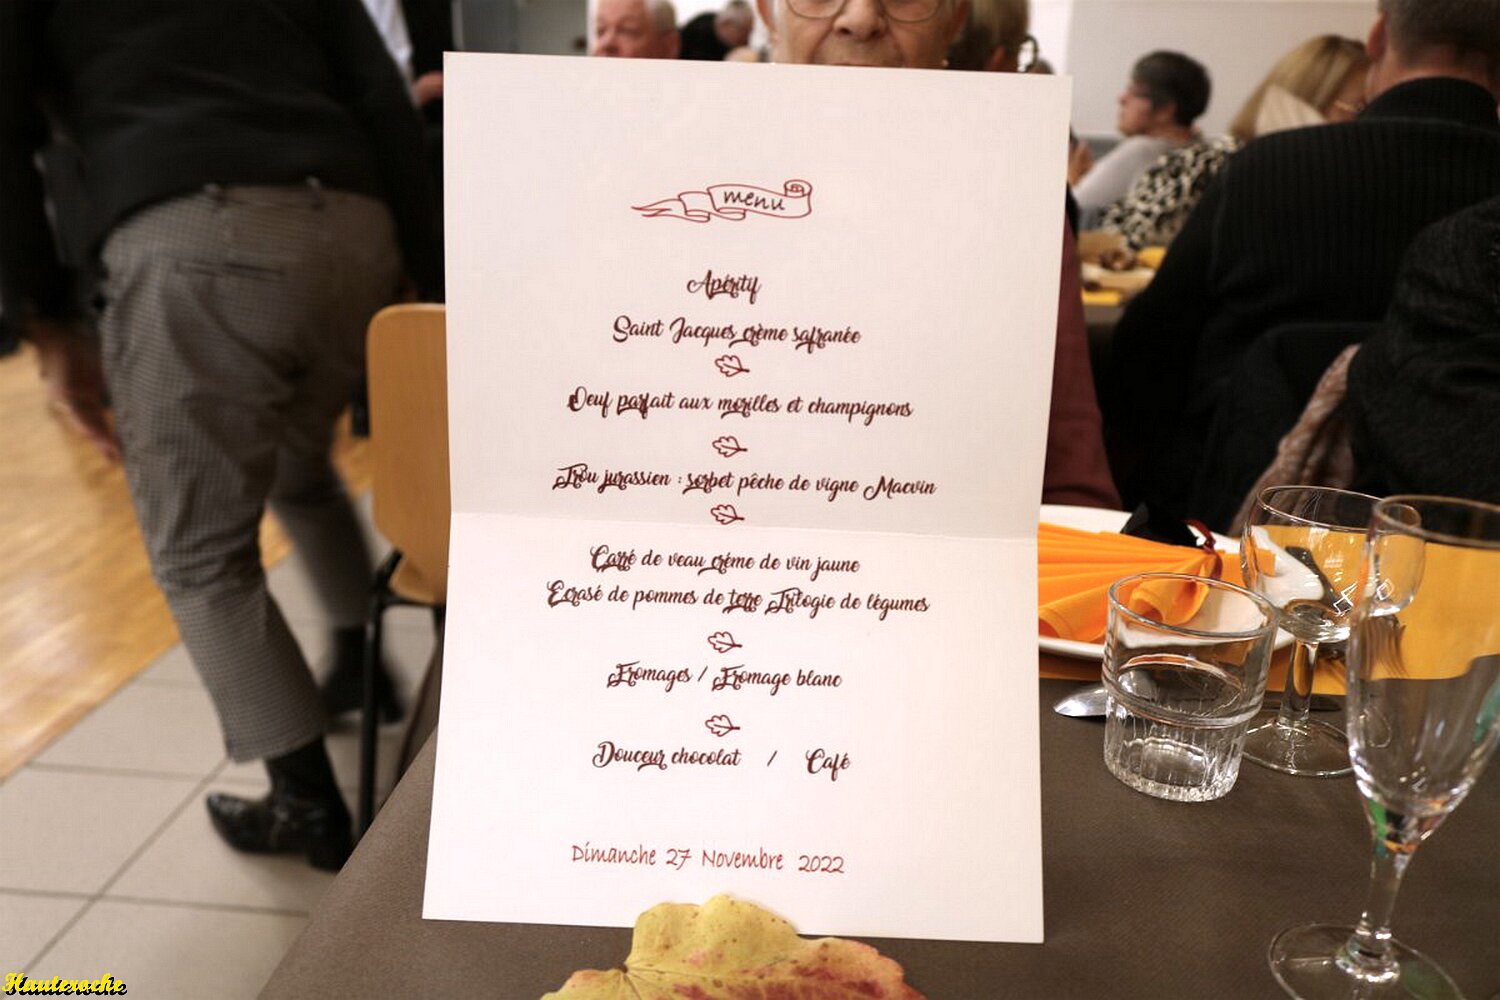 menu
Apéritif
Saint Jacques crème safranée
Oeuf parfait aux morilles et champignons
Trou jurassien : sorbet pêche de vigne Macvin
Carré de veau crème de vin jaune
Ecrasé de pommes de terre Trilogie de légumes
Fromages / Fromage blanc
Douceur chocolat / Café
Dimanche 27 Novembre 2022
Hauteroche